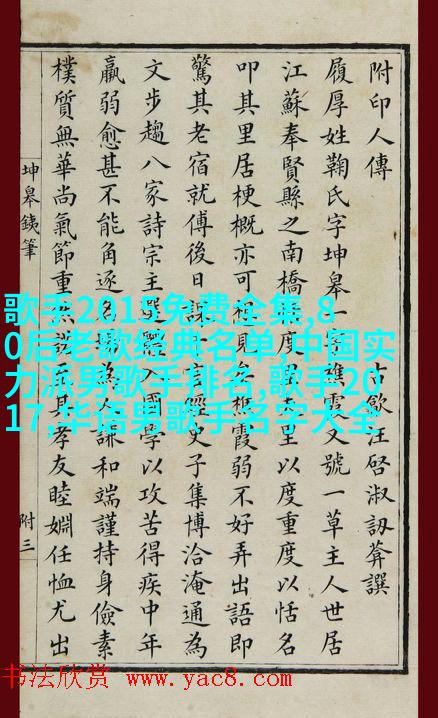 附印人傳 古歙汪啓淑訒葊譔
履厚姓鞠氏字坤皋一字樵霞又號一草主人世居
江蘇奉賢縣之南橋里以度重度以恬名
叩其里居梗概亦可想見矣樵霞弱不好弄出語即
驚其老宿就傅後日課言經史子集博洽淹通為
文步趨八家詩宗主選體入國學以攻苦得疾中年
羸弱愈甚不能角逐名場為人謙和端謹持身儉素
樸質無華尚氣節重然諾其孝友睦婣任恤尤出
坤皋鐵筆
附三
歌手2018免费全集,8
0后老歌经典名单,中国实
力派男歌手排名,歌手20
17,华语男歌手名字大全
书法欣赏 www.yac8.com